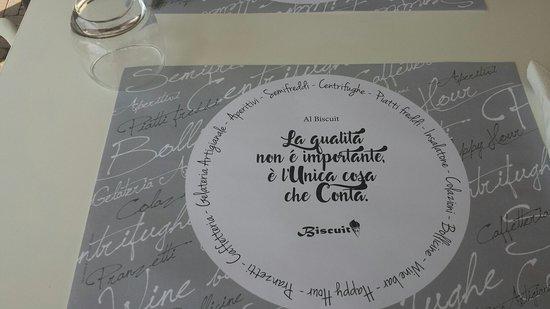 Al Biscuit
La qualità
non é importante,
è l'Unica cosa
che Conta.
Biscuit
Caffetteria - Gelateria Artigianale - Aperitivi - Semifreddi - Centrifughe - Piatti freddi - Insalatone - Colazioni - Bollicine - Wine bar - Happy Hour - Pranzetti -
Semifreddi
Centrifughe
Caffetteria
Aperitivi
Piatti freddi
Gelateria
Colaz
Pranzetti
Happy Hour
Caffetteria
Wine b